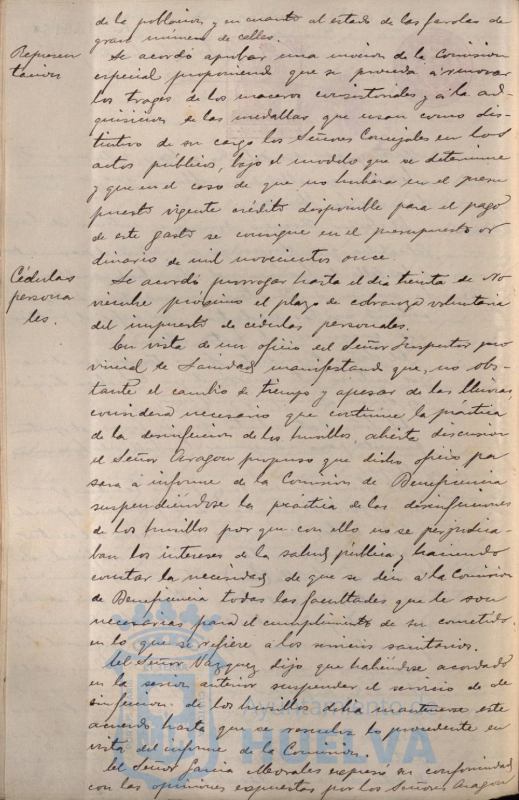 de la poblacion, y en cuanto al estado de las farolas de
gran número de calles.
Represen
tacion
Se acordó aprobar una mocion de la Comision
especial proponiendo que se proceda á renovar
los trages de los maceros consistoriales y á la ad-
quisicion de las medallas que usan como dis-
tintivo de su cargo los Señores Concejales en los
actos públicos, bajo el modelo que se determine
y que en el caso de que no hubiera en el presu
puesto vigente crédito disponible para el pago
de este gasto se consigne en el presupuesto or
dinario de mil novecientos once.
Cédulas
persona
les.
Se acordó prorrogar hasta el dia treinta de No
viembre proximo el plazo de cobranza voluntaria
del impuesto de cédulas personales.
En vista de un oficio del Señor Inspector pro
vincial de Sanidad manifestando que, no obs-
tante el cambio de tiempo y apesar de las lluvias,
considera necesario que continúe la práctica
de la desinfeccion de los husillos, abierta discusion
el Señor Aragon propuso que dicho oficio pa
sara á informe de la Comision de Beneficencia
suspendiéndose la práctica de las desinfecciones
de los husillos por que con ello no se perjudica-
ban los intereses de la salud pública, y haciendo
constar la necesidad de que se dén á la Comision
de Beneficencia todas las facultades que le son
necesarias para el cumplimiento de su cometido,
en lo que se refiere á los servicios sanitarios.
El Señor Vázquez dijo que habiéndose acordado
en la sesion anterior suspender el servicio de de
sinfeccion de los husillos debia mantenerse este
acuerdo hasta que se resuelva lo procedente en
vista del informe de la Comision.
El Señor Garcia Morales expresó su conformidad
con las opiniones expuestas por los Señores Aragon
HUELVA